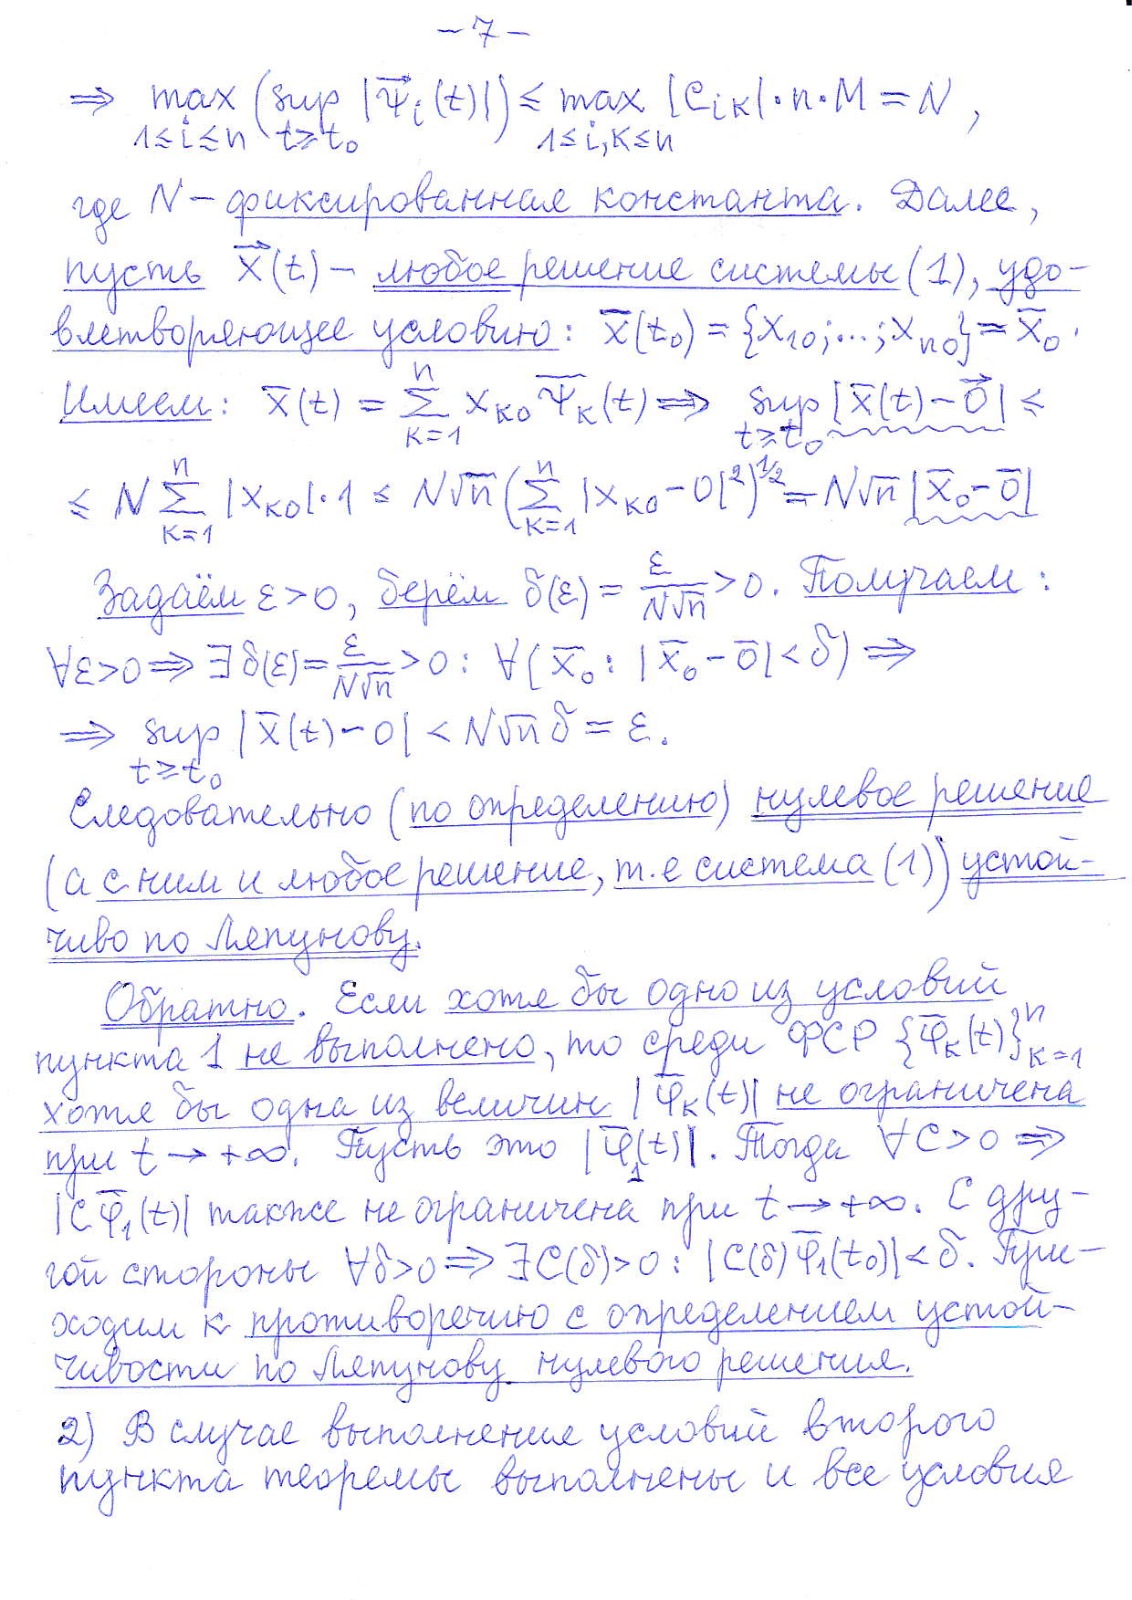 – 7 –
⇒ max_{1≤i≤n} ( sup_{t≥t₀} |ψ⃗ᵢ(t)| ) ≤ max_{1≤i,k≤n} |C_{ik}|·n·M = N,
где N – фиксированная константа. Далее,
пусть x⃗(t) – любое решение системы (1), удо-
влетворяющее условию: x̄(t₀) = {x₁₀;...;xₙ₀} = x̄₀.
Имеем: x̄(t) = ∑_{k=1}^{n} x_{k0} ψ̄_k(t) ⇒ sup_{t≥t₀} |x̄(t) – 0⃗| ≤
≤ N ∑_{k=1}^{n} |x_{k0}|·1 ≤ N√n ( ∑_{k=1}^{n} |x_{k0} – 0|² )^{1/2} = N√n |x̄₀ – 0̄|
Задаём ε>0, берём δ(ε) = ε/(N√n) > 0. Получаем:
∀ε>0 ⇒ ∃ δ(ε) = ε/(N√n) > 0: ∀(x̄₀: |x̄₀ – 0̄| < δ) ⇒
⇒ sup_{t≥t₀} |x̄(t) – 0| < N√n δ = ε.
Следовательно (по определению) нулевое решение
(а с ним и любое решение, т.е система (1)) устой-
чиво по Ляпунову.
Обратно. Если хотя бы одно из условий
пункта 1 не выполнено, то среди ФСР {φ̄_k(t)}_{k=1}^{n}
хотя бы одна из величин |φ̄_k(t)| не ограничена
при t → +∞. Пусть это |φ̄₁(t)|. Тогда ∀C>0 ⇒
|Cφ̄₁(t)| также не ограничена при t → +∞. С дру-
гой стороны ∀δ>0 ⇒ ∃C(δ)>0: |C(δ)φ̄₁(t₀)| < δ. При-
ходим к противоречию с определением устой-
чивости по Ляпунову нулевого решения.
2) В случае выполнения условий второго
пункта теоремы выполнены и все условия